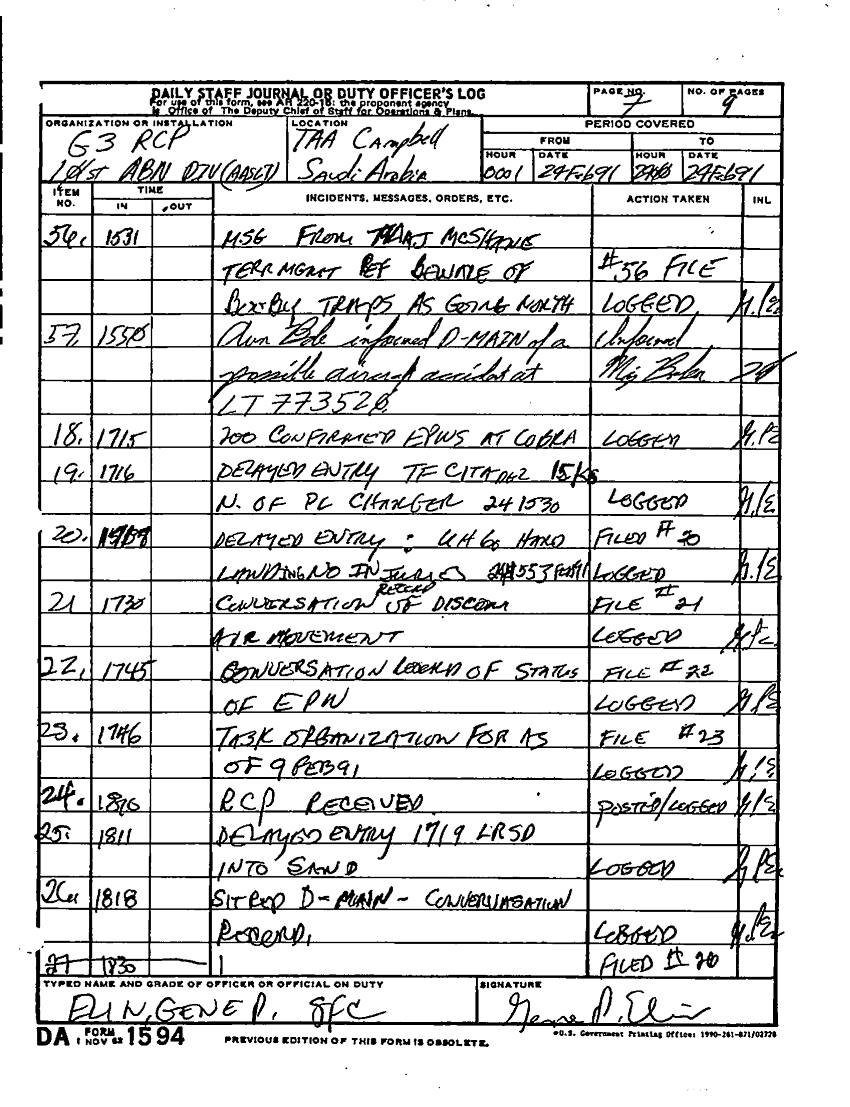 DAILY STAFF JOURNAL OR DUTY OFFICER'S LOG
For use of this form, see AR 220-15; the proponent agency
is Office of The Deputy Chief of Staff for Operations & Plans.
PAGE NO. 7
NO. OF PAGES 9
ORGANIZATION OR INSTALLATION
G3 RCP
101st ABN DIV (AASLT)
LOCATION
TAA Campbell
Saudi Arabia
PERIOD COVERED
FROM TO
HOUR DATE HOUR DATE
0001 24Feb91 2400 24Feb91
ITEM NO. TIME IN OUT INCIDENTS, MESSAGES, ORDERS, ETC. ACTION TAKEN INL
56. 1531 MSG FROM MAJ MCSHANE
TERR MGMT REF BEWARE OF #56 FILE
TRAPS AS GOING NORTH LOGGED
57. 1550 informed D-MAIN of a Informed
possible aircraft accident at Maj
LT 773520.
18. 1715 200 CONFIRMED EPWS AT COBRA LOGGED
19. 1716 DELAYED ENTRY TF CITADEL 15 KS
N. OF PL CHARGER 241530 LOGGED
20. DELAYED ENTRY : UH60 HARD FILED # 20
LANDING NO INJURIES LOGGED
21 1730 CONVERSATION RECORD OF DISCOM FILE # 21
AIR MOVEMENT LOGGED
22. 1745 CONVERSATION RECORD OF STATUS FILE # 22
OF EPW LOGGED
23. 1746 TASK ORGANIZATION FOR AS FILE #23
OF 9 FEB 91 LOGGED
24. RCP RECEIVED POSTED/LOGGED
25. 1811 DELAYED ENTRY 1719 LRSD
INTO SAND LOGGED
26. 1818 SITREP D-MAIN - CONVERSATION
RECORD. LOGGED
27 1830 FILED # 26
TYPED NAME AND GRADE OF OFFICER OR OFFICIAL ON DUTY
ELIN, GENE P. SFC
SIGNATURE
Gene P. Elin
DA FORM 1 NOV 62 1594
PREVIOUS EDITION OF THIS FORM IS OBSOLETE.
*U.S. Government Printing Office: 1990-261-871/02778